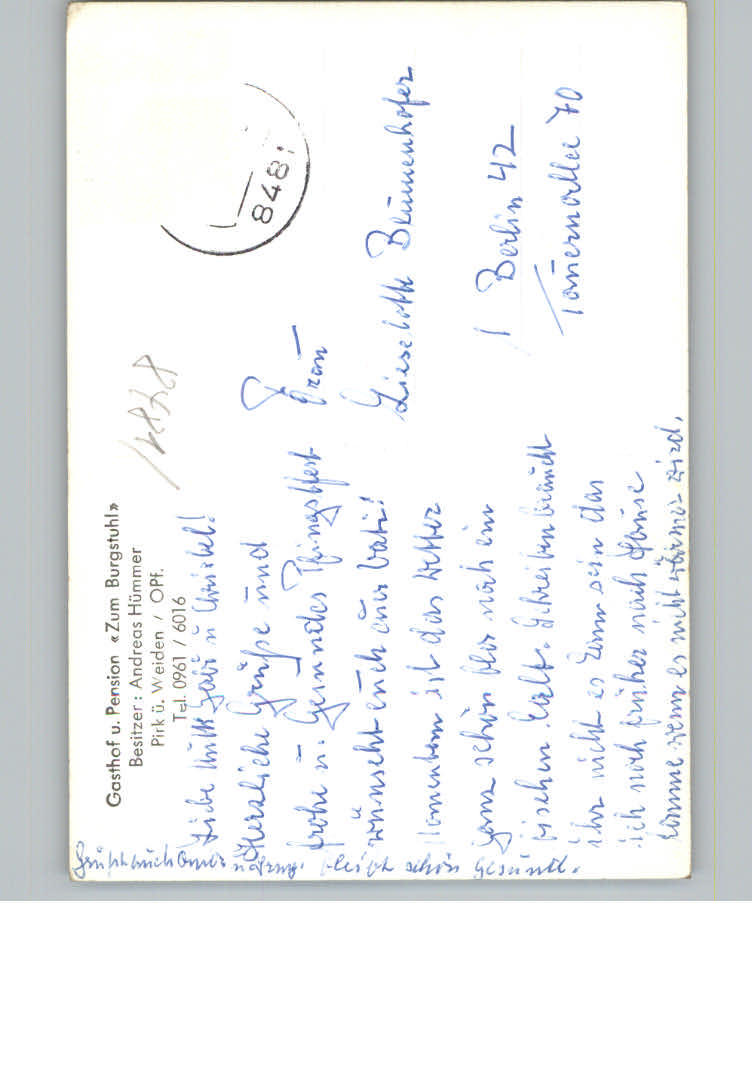 Gasthof u. Pension «Zum Burgstuhl»
Besitzer: Andreas Hümmer
Pirk ü. Weiden / OPf.
Tel. 0961 / 6016
Liebe Mutti Gabi u Christel!
Herzliche Grüße und
frohe u. Gesundes Pfingstfest
wünscht euch euer Vati!
Momentan ist das Wetter
ganz schön blos noch ein
bischen kalt. Schreiben braucht
ihr nicht es kann sein das
ich noch früher nach Hause
komme wenn es nicht wärmer wird.
Grüßt auch Oma bleibt schön Gesund.
848
Frau
Lieselotte Blumenhofer
1 Berlin 42
Tauernallee 70